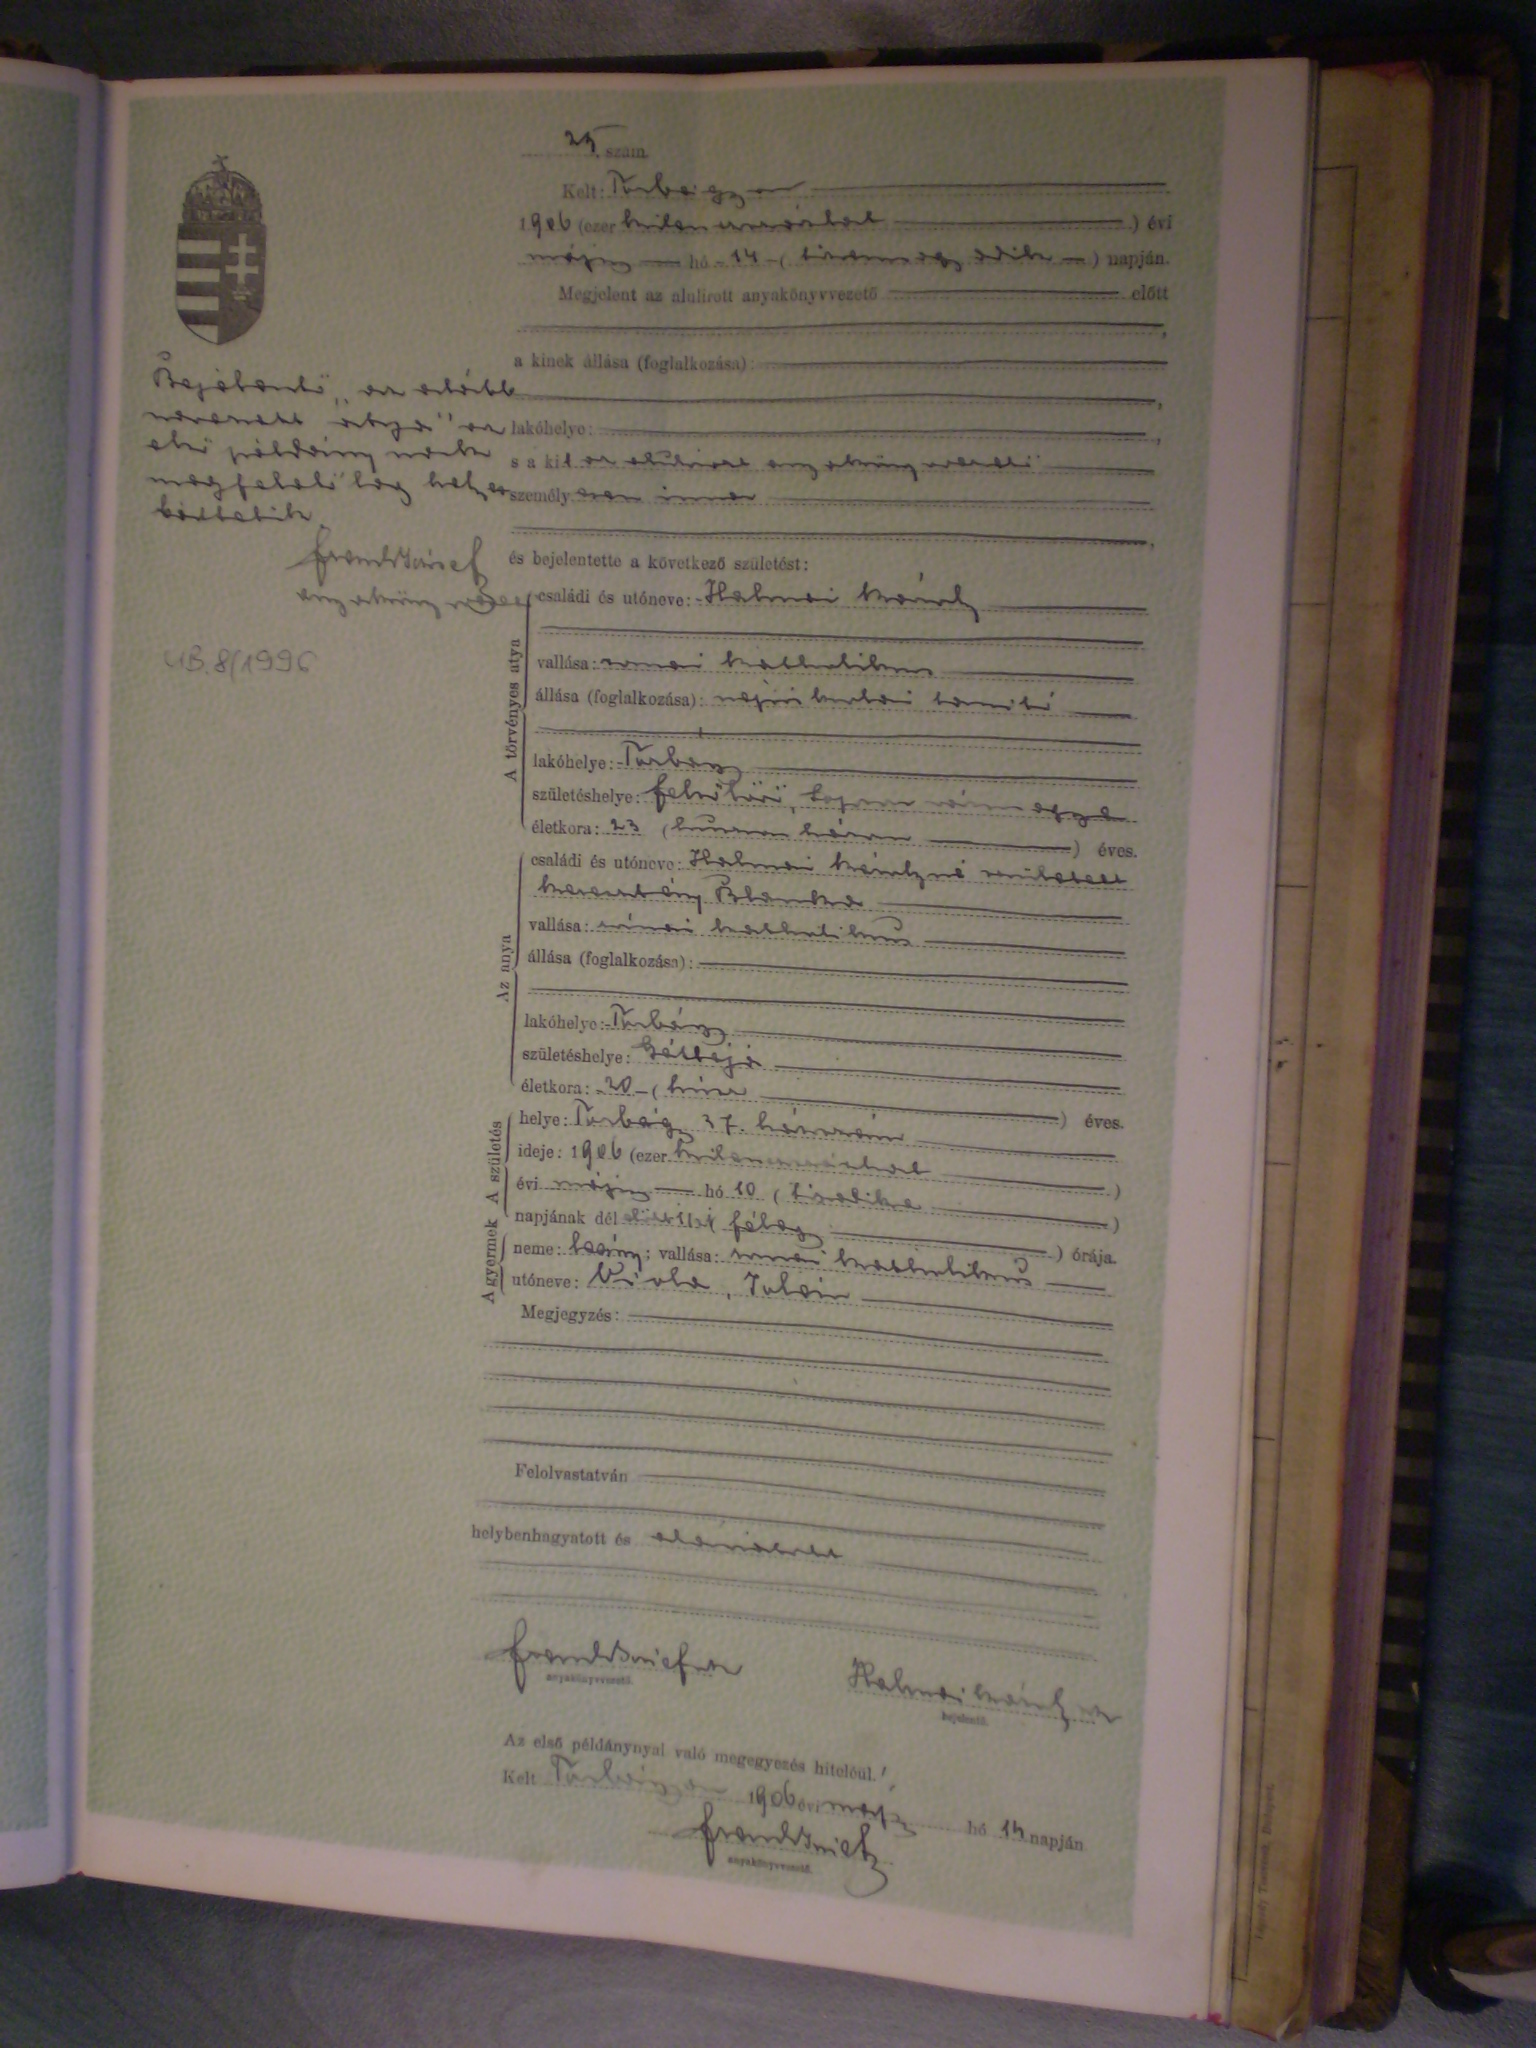 25. szám.
Kelt: Torbágyon
1906 (ezer kilenczszázhat) évi
május hó 14 (tizennegyedik) napján.
Megjelent az alulirott anyakönyvvezető előtt
a kinek állása (foglalkozása):
Bejelentő „az alább
nevezett atya" az
első példány nak
megfelelőleg helyes
bittetik
Frank József
anyakönyvvezető
UB. 8/1996
lakóhelye:
s a kit az alulirott anyakönyvvezető
személyesen ismer
és bejelentette a következő születést:
A törvényes atya
családi és utóneve: Halmai Károly
vallása: római katholikus
állása (foglalkozása): népiskolai tanító
lakóhelye: Torbágy
születéshelye: Felsőlövő, Sopron vármegye
életkora: 23 (huszonhárom) éves.
Az anya
családi és utóneve: Halmai Károlyné született
Keresztény Blanka
vallása: római katholikus
állása (foglalkozása):
lakóhelye: Torbágy
születéshelye:
életkora: 20 (húsz) éves.
A születés
helye: Torbágy 37. házszám
ideje: 1906 (ezer kilenczszázhat)
évi május hó 10 (tizedike)
napjának dél előtti fél egy) órája.
A gyermek
neme: leány; vallása: római katholikus
utóneve: Viola, Jolán
Megjegyzés:
Felolvastatván
helybenhagyatott és aláiratott
Frank József
anyakönyvvezető.
Halmai Károly
bejelentő.
Az első példánynyal való megegyezés hiteléül.
Kelt Torbágyon 1906 évi május hó 14 napján
Frank József
anyakönyvvezető.